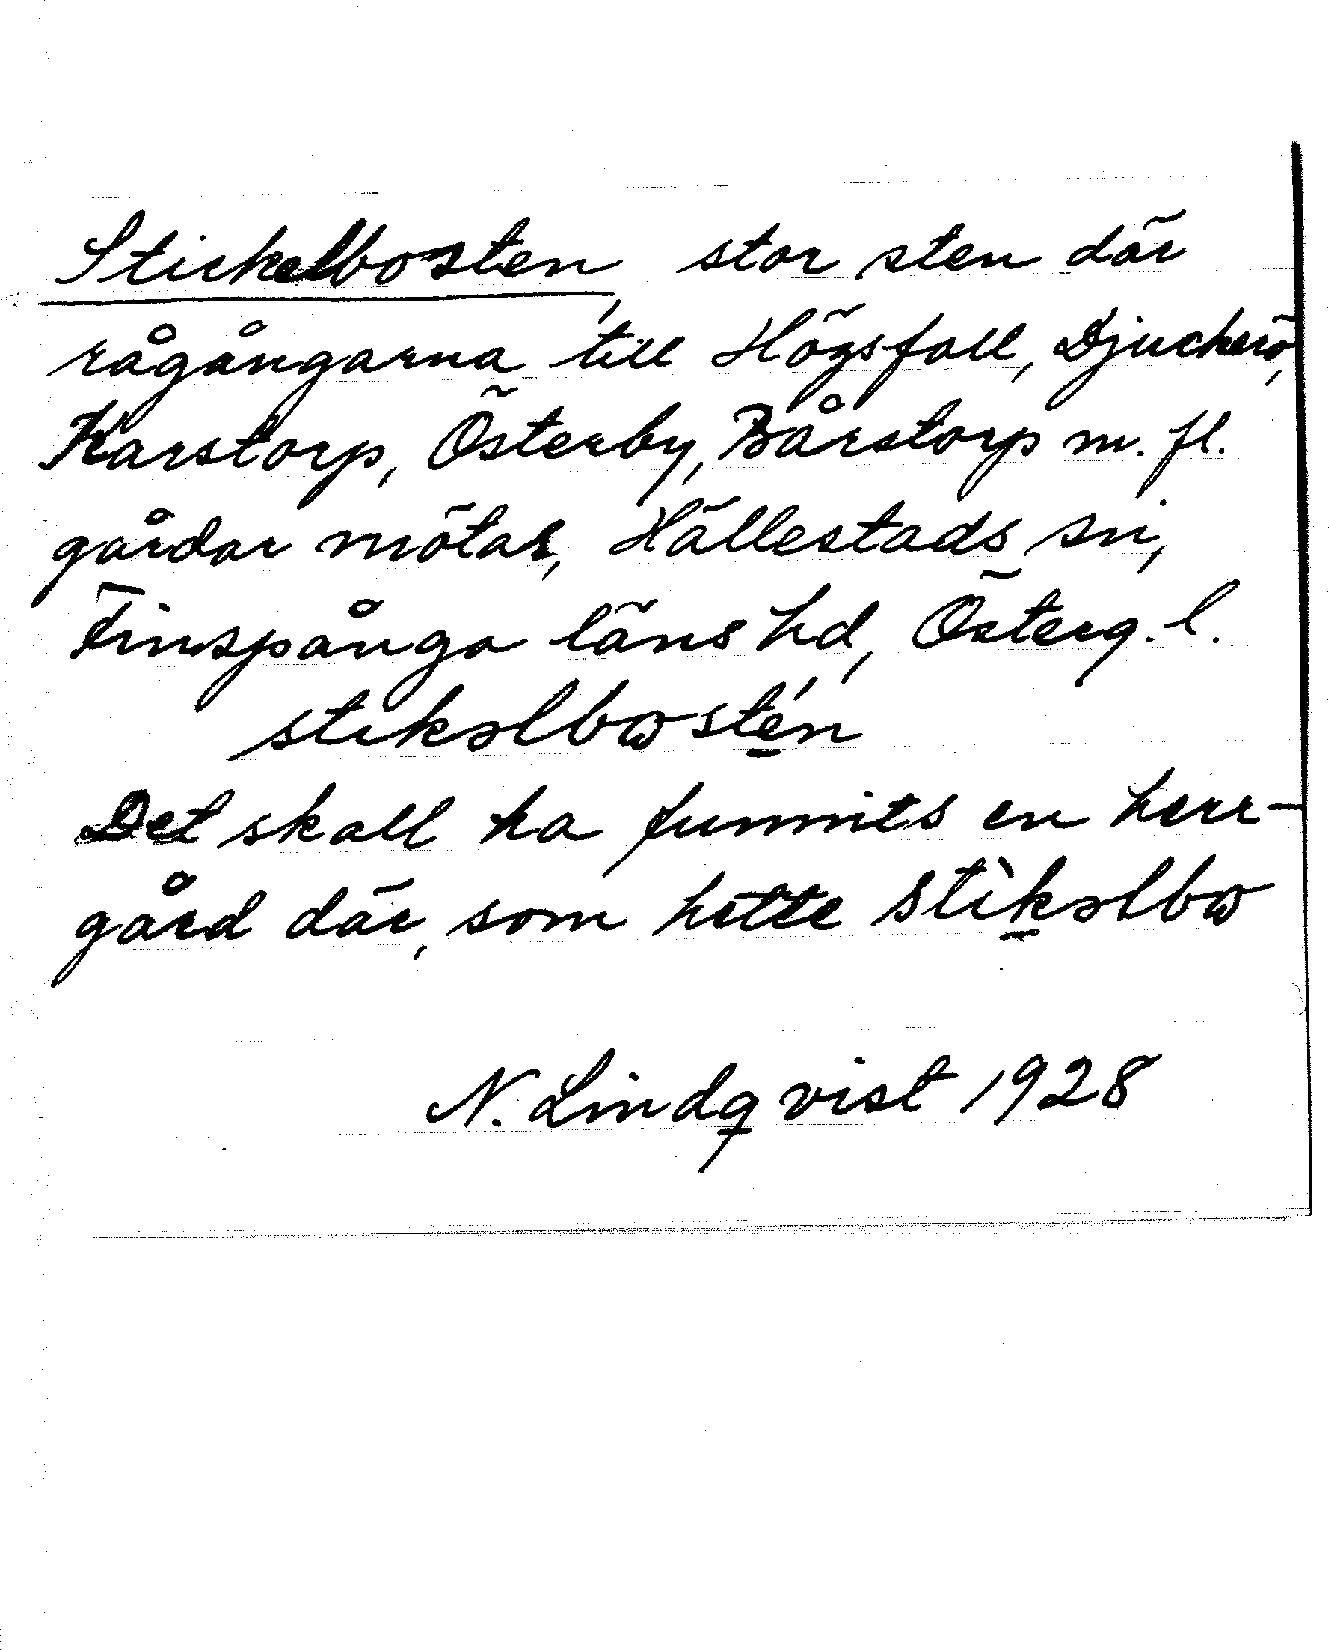 Stickelbosten, stor sten där
rågångarna till Högsfall, Djuckerö,
Karstorp, Österby, Bårstorp m. fl.
gårdar mötas, Hällestads sn,
Finspånga läns hd, Österg. l.
stikəlbωstén
Det skall ha funnits en herr-
gård där, som hette stìkəlbω
N. Lindqvist 1928